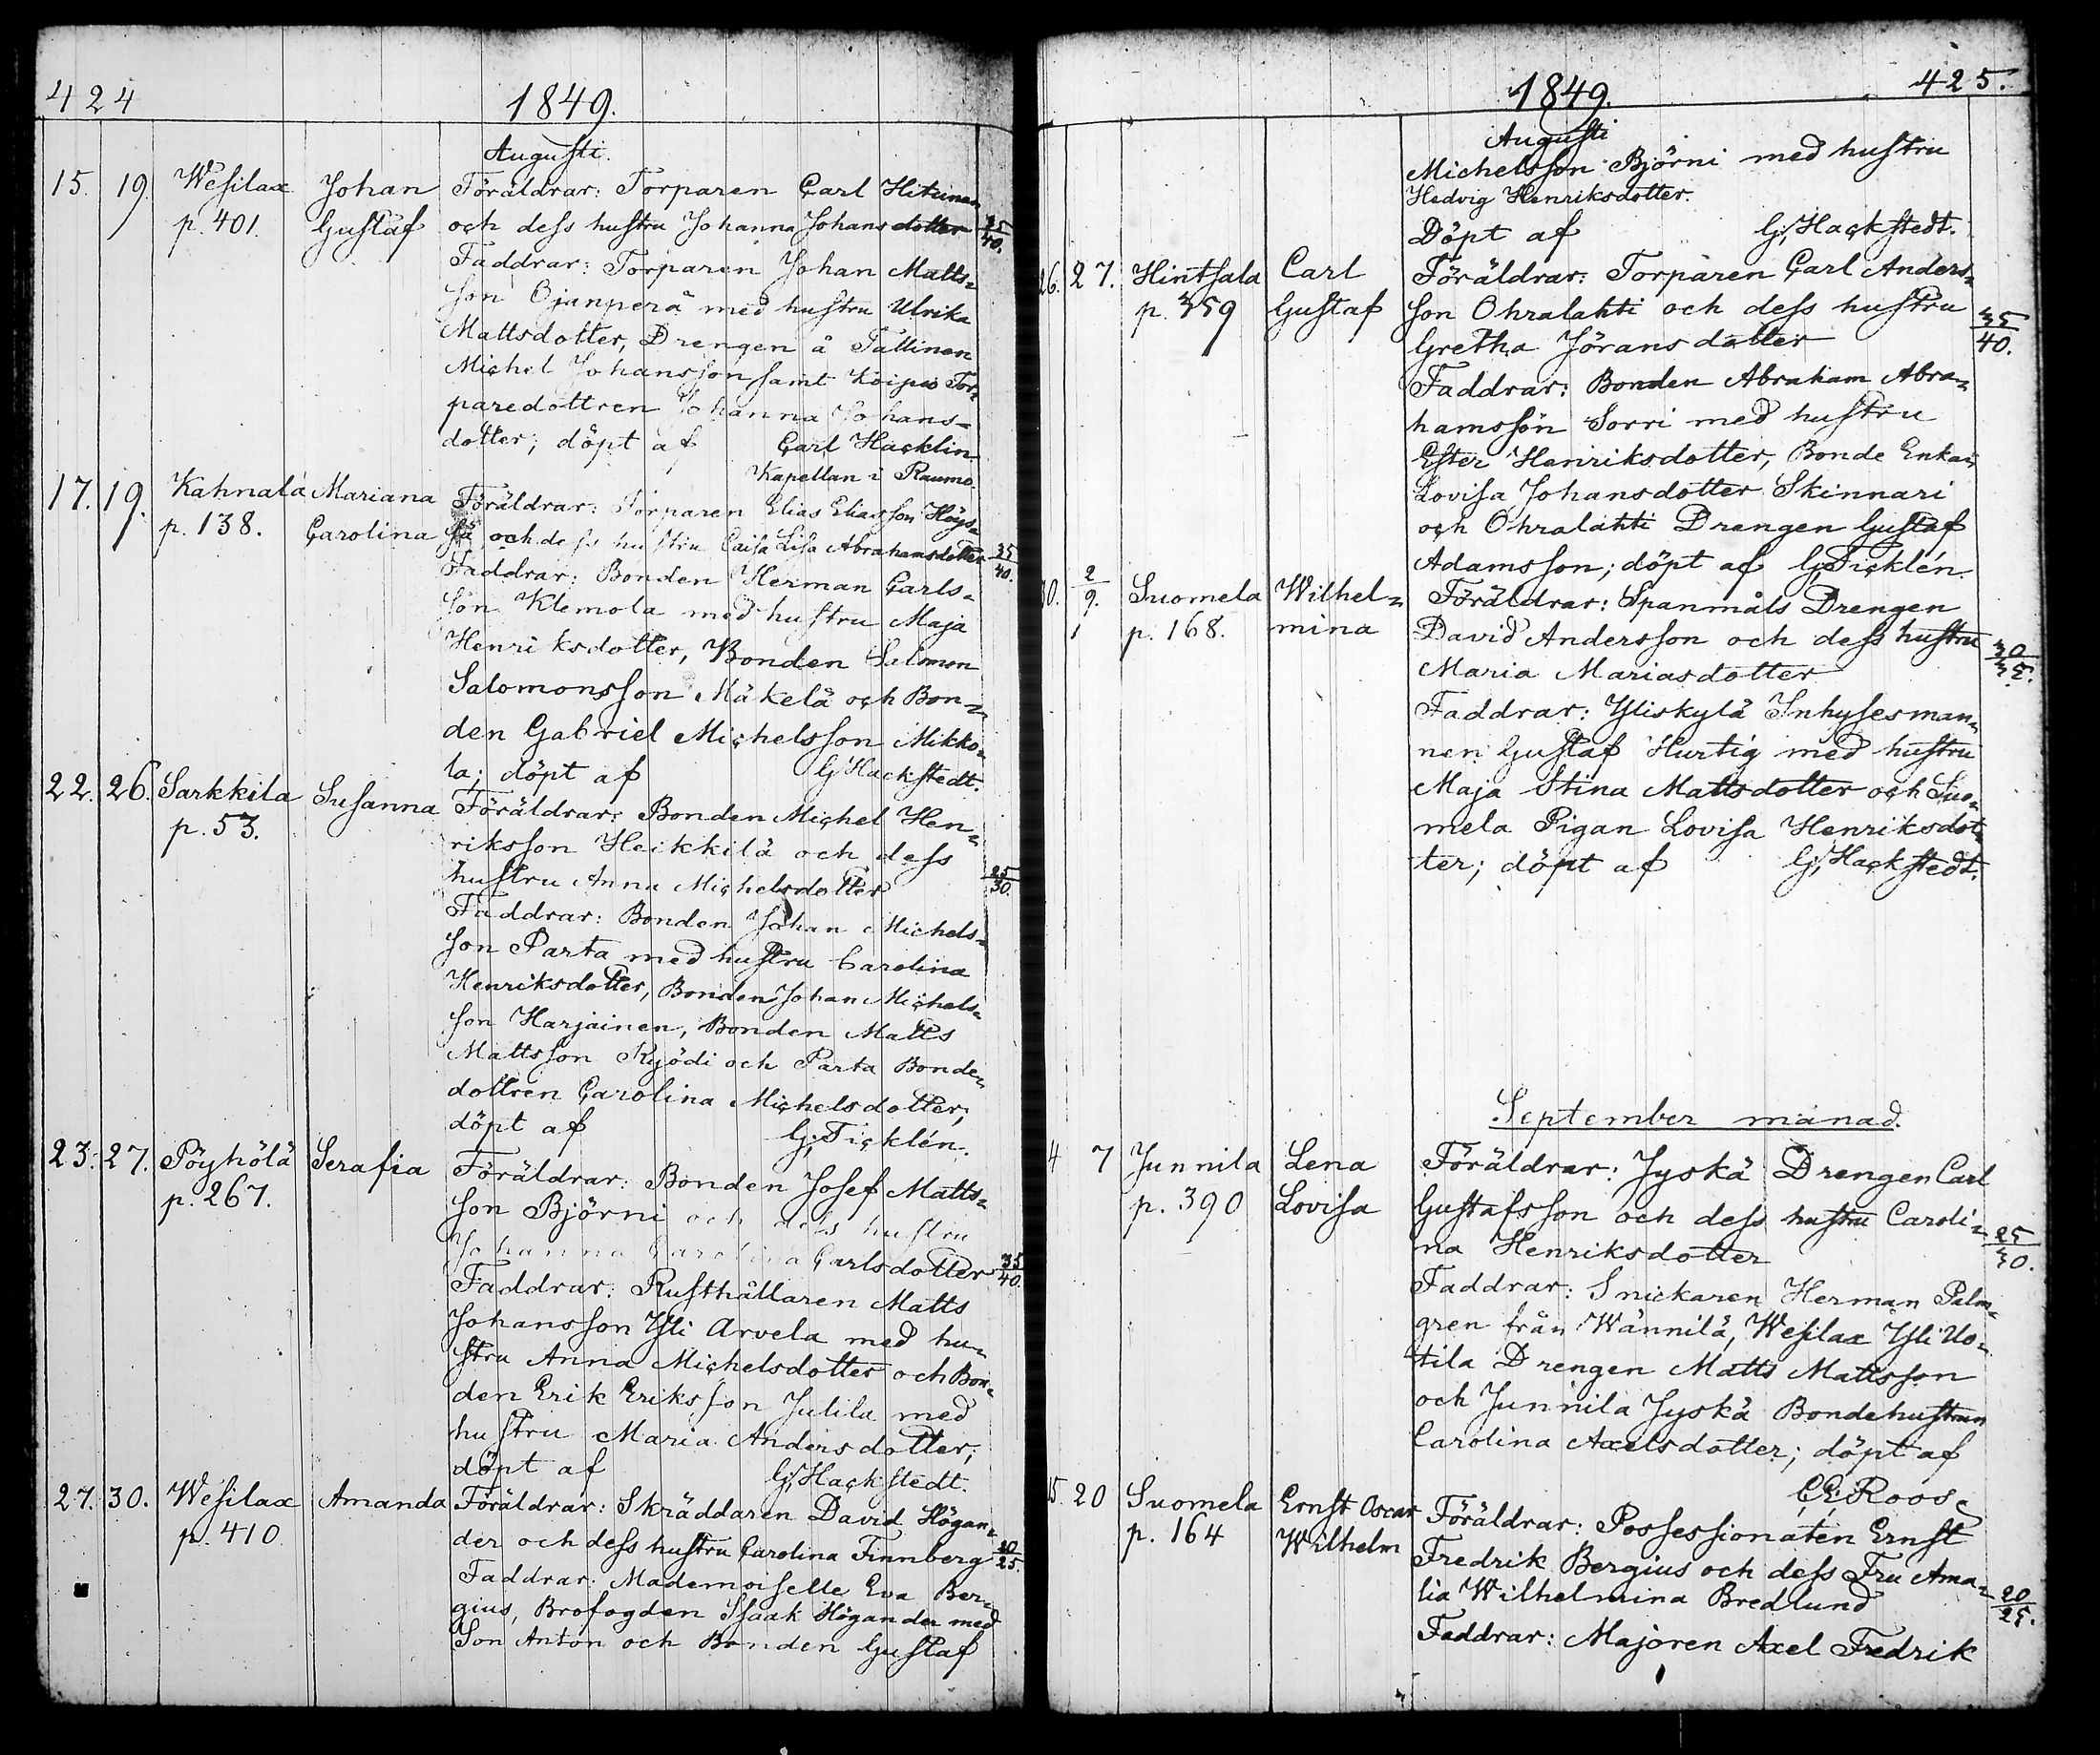 424
1849.
Augusti.
15. 19. Wesilax Johan Föräldrar: Torparen Carl Hitunen
p. 401. Gustaf och dess hustru Johanna Johansdotter 35/40.
Faddrar: Torparen Johan Matts=
son Ojanperä med hustru Ulrika
Mattsdotter, Drengen å Tallinen
Michel Johansson samt Koipio Tor=
paredottren Johanna Johans=
dotter; döpt af Carl Hacklin
Kapellan i Raumo.
17. 19. Kahnala Mariana Föräldrar: Torparen Elias Eliasson Höys=
p. 138. Carolina sä och dess hustru Caisa Lisa Abrahamsdotter 35/40.
Faddrar: Bonden Herman Carls=
son Klemola med hustru Maja
Henriksdotter, Bonden Salomon
Salomonsson Mäkelä och Bon=
den Gabriel Michelsson Mikko=
la; döpt af G. Hackstedt.
22. 26. Sarkkila Susanna Föräldrar: Bonden Michel Hen=
p. 53. riksson Heikkilä och dess
hustru Anna Michelsdotter 25/30.
Faddrar: Bonden Johan Michels=
son Parta med hustru Carolina
Henriksdotter, Bonden Johan Michels=
son Harjainen, Bonden Matts
Mattsson Kyödi och Parta Bonde=
dottren Carolina Michelsdotter;
döpt af G. Ticklén.
23. 27. Pöyhölä Serafia Föräldrar: Bonden Josef Matts=
p. 267. son Björni och dess hustru
Johanna Carolina Carlsdotter 35/40.
Faddrar: Rusthållaren Matts
Johansson Yli Arvela med hu=
stru Anna Michelsdotter och Bon=
den Erik Eriksson Julila med
hustru Maria Andersdotter;
döpt af G. Hackstedt.
27. 30. Wesilax Amanda Föräldrar: Skräddaren David Högan=
p. 410. der och dess hustru Carolina Finnberg 20/25.
Faddrar: Mademoiselle Eva Ber=
gius, Brofogden Isaak Högander med
Son Anton och Bonden Gustaf
425.
1849.
Augusti
Michelsson Björni med hustru
Hedvig Henriksdotter.
Döpt af G. Hackstedt.
26. 27. Hintsala Carl Föräldrar: Torparen Carl Anders=
p. 359 Gustaf son Ohralahti och dess hustru 35/40.
Gretha Jöransdotter
Faddrar: Bonden Abraham Abra=
hamsson Sorri med hustru
Ester Henriksdotter, Bonde Enkan
Lovisa Johansdotter Skinnari
och Ohralahti Drengen Gustaf
Adamsson; döpt af G. Ticklén.
30. 2/9. Suomela Wilhel= Föräldrar: Spanmåls Drengen
p. 168. mina David Andersson och dess hustru 30/35.
Maria Mariasdotter
Faddrar: Yliskylä Inhysesman=
nen Gustaf Hurtig med hustru
Maja Stina Mattsdotter och Suo=
mela Pigan Lovisa Henriksdot=
ter; döpt af G. Hackstedt.
September månad.
4 7 Junnila Lena Föräldrar: Jyskä Drengen Carl
p. 390 Lovisa Gustafsson och dess hustru Caroli= 25/30.
na Henriksdotter
Faddrar: Snickaren Herman Palm=
gren från Wännilä, Wesilax Yli Uo=
tila Drengen Matts Mattsson
och Junnila Jyskä Bondehustrun
Carolina Axelsdotter; döpt af
C. E. Roos.
15. 20 Suomela Ernst Oscar Föräldrar: Possessionaten Ernst
p. 164 Wilhelm Fredrik Bergius och dess Fru Ama=
lia Wilhelmina Bredlund 20/25.
Faddrar: Majoren Axel Fredrik